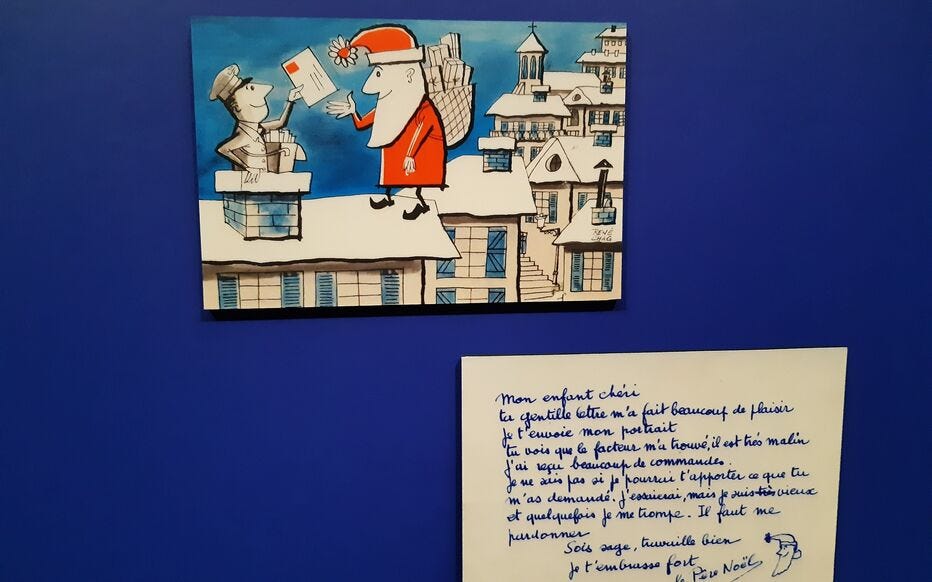 RENÉ
CHAG
Mon enfant chéri
ta gentille lettre m'a fait beaucoup de plaisir
Je t'envoie mon portrait
tu vois que le facteur m'a trouvé, il est très malin
J'ai reçu beaucoup de commandes.
Je ne sais pas si je pourrai t'apporter ce que tu
m'as demandé. J'essaierai, mais je suis très vieux
et quelquefois je me trompe. Il faut me
pardonner
Sois sage, travaille bien
Je t'embrasse fort
le Père Noël